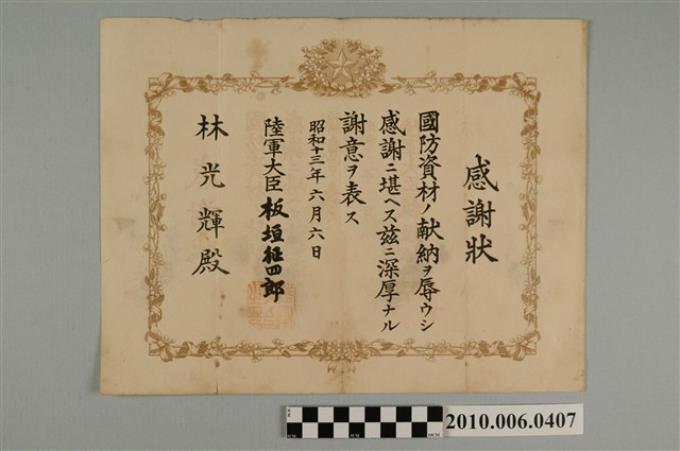 感謝狀
國防資材ノ献納ヲ辱ウシ
感謝ニ堪ヘス茲ニ深厚ナル
謝意ヲ表ス
昭和十三年六月六日
陸軍大臣 板垣征四郎
林光輝殿
2010.006.0407